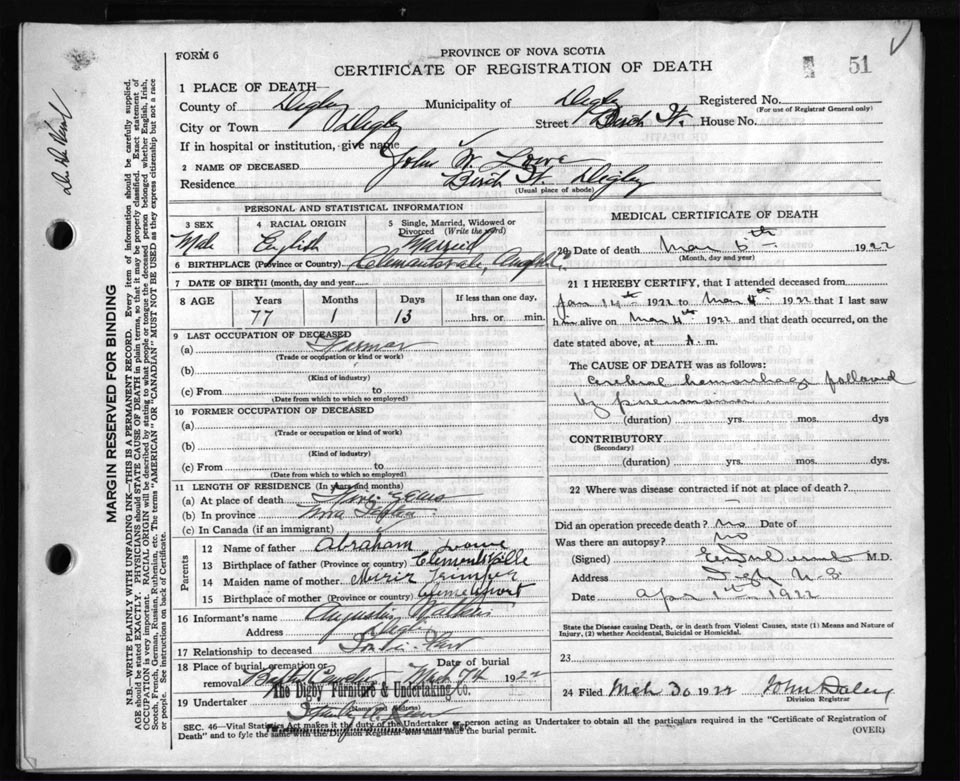 FORM 6
PROVINCE OF NOVA SCOTIA
CERTIFICATE OF REGISTRATION OF DEATH
51
1 PLACE OF DEATH—
County of Digby Municipality of Digby Registered No.
(For use of Registrar General only)
City or Town Digby Street Birch St. House No.
If in hospital or institution, give name
2 NAME OF DECEASED John W. Lowe
Residence Birch St. Digby
(Usual place of abode)
PERSONAL AND STATISTICAL INFORMATION
3 SEX Male
4 RACIAL ORIGIN English
5 Single, Married, Widowed or Divorced (Write the word) Married
6 BIRTHPLACE (Province or Country) Clementsvale,
7 DATE OF BIRTH (month, day and year)
8 AGE Years Months Days If less than one day,
77 1 13 hrs. or min.
9 LAST OCCUPATION OF DECEASED
(a) Farmer
(Trade or occupation or kind of work)
(b)
(Kind of industry)
(c) From to
(Date from which to which so employed)
10 FORMER OCCUPATION OF DECEASED
(a)
(Trade or occupation or kind of work)
(b)
(Kind of industry)
(c) From to
(Date from which to which so employed)
11 LENGTH OF RESIDENCE (In years and months)
(a) At place of death years
(b) In province Nova Scotia
(c) In Canada (if an immigrant)
Parents
12 Name of father Abraham Lowe
13 Birthplace of father (Province or country)
14 Maiden name of mother
15 Birthplace of mother (Province or country)
16 Informant's name
Address Digby
17 Relationship to deceased
18 Place of burial, cremation or removal Date of burial
1922
19 Undertaker The Digby Furniture & Undertaking Co.
(Name and address)
MEDICAL CERTIFICATE OF DEATH
20 Date of death Mar 5th 1922
(Month, day and year)
21 I HEREBY CERTIFY, that I attended deceased from
Jan 14th 1922 to Mar 4th 1922 that I last saw
him alive on Mar 4th 1922 and that death occurred, on the
date stated above, at A. m.
The CAUSE OF DEATH was as follows:
Cerebral hemorrhage followed
by pneumonia
(duration) yrs. mos. dys
CONTRIBUTORY
(Secondary)
(duration) yrs. mos. dys.
22 Where was disease contracted if not at place of death?
Did an operation precede death? No Date of
Was there an autopsy? No
(Signed) M.D.
Address Digby N.S.
Date Apr 1st 1922
State the Disease causing Death, or in death from Violent Causes, state (1) Means and Nature of Injury, (2) whether Accidental, Suicidal or Homicidal.
23
24 Filed Mch 30 1922 John Daley
Division Registrar
SEC. 46—Vital Statistics Act makes it the duty of the Undertaker or person acting as Undertaker to obtain all the particulars required in the "Certificate of Registration of
Death" and to fyle the same with the Division Registrar who must issue the burial permit.
(OVER)
MARGIN RESERVED FOR BINDING
N.B.—WRITE PLAINLY WITH UNFADING INK—THIS IS A PERMANENT RECORD. Every item of information should be carefully supplied.
AGE should be stated EXACTLY. PHYSICIANS should STATE CAUSE OF DEATH in plain terms, so that it may be properly classified. Exact statement of
OCCUPATION is very important. RACIAL ORIGIN will be described by stating to what people or tongue the deceased person belonged, whether English, Irish,
Scotch, French, German, Russian, Ruthenian, etc. The terms "AMERICAN" or "CANADIAN" MUST NOT BE USED as they express citizenship but not a race
or people. See instructions on back of Certificate.